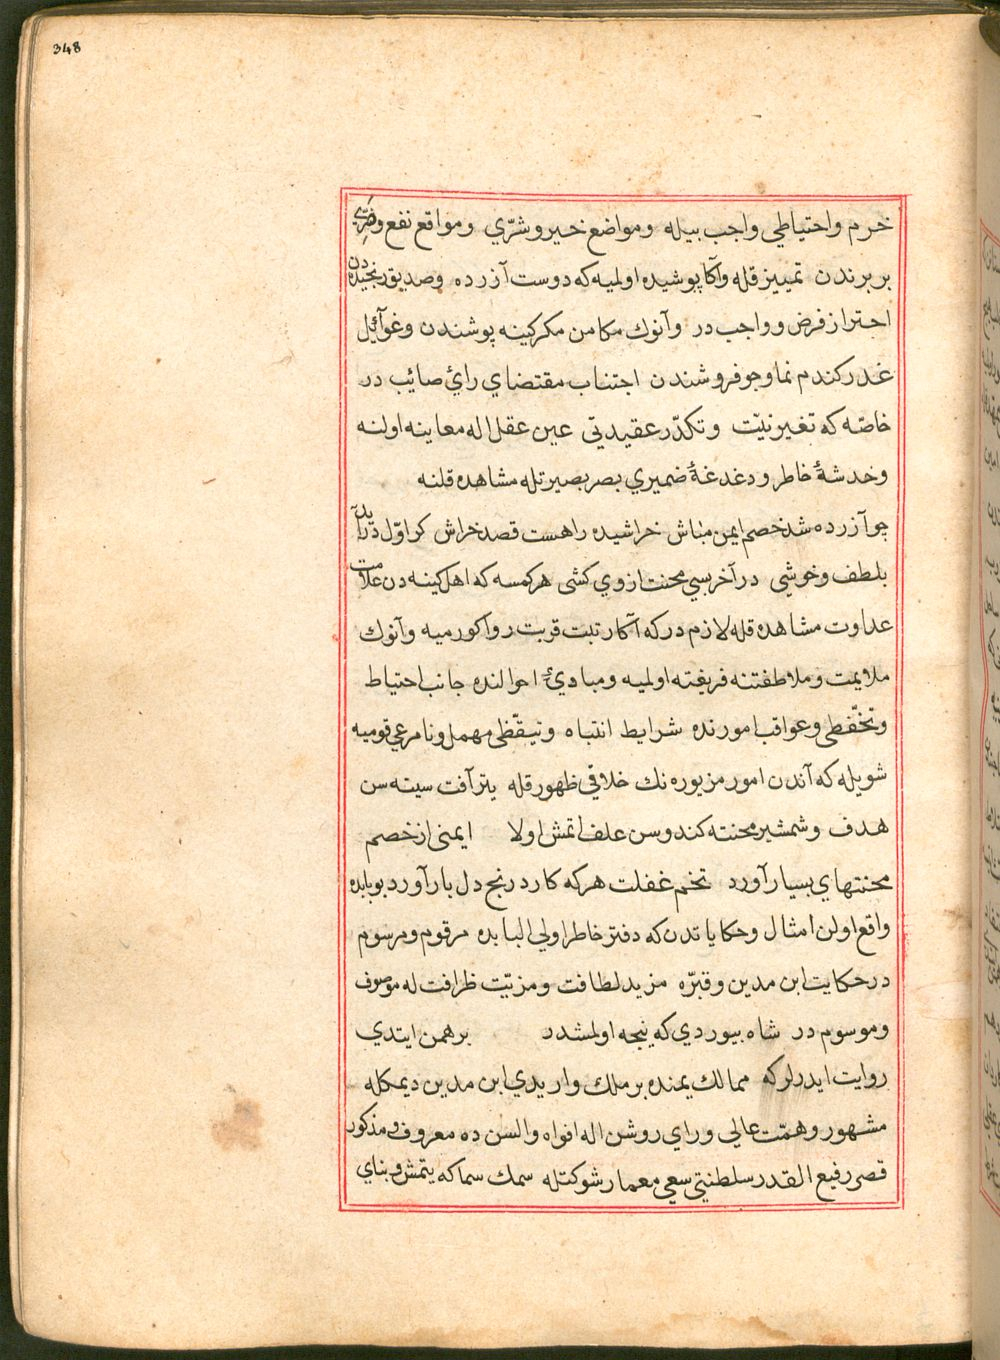 348
خرم واحتياطي واجب بيله ومواضع خير وشرّي ومواقع نفع وضرّي
بربرندن تمييز قله وآكا پوشيده اولميه كه دوست آزرده وصديق رنجيده دن
احتراز فرض وواجب در وآنوك مكامن مكر كينه پوشندن وغوآئل
غدر كندم نما وجو فروشندن اجتناب مقتضاي رائ صائب در
خاصّه كه تغير نيّت وتكدّر عقيدتي عين عقل اله معاينه اولنه
وخدشهٔ خاطر ودغدغهٔ ضميري بصر بصيرتله مشاهده قلنه
چو آزرده شد خصم ايمن مباش خراشيده را هست قصد خراش كر اوّل درآيد
بلطف وخوشي در آخر بسي محنت از وي كشى هركمسه كه اهل كينه دن علامت
عداوت مشاهده قله لازم در كه آكا رتبت قربت روا كورميه وآنوك
ملايمت وملاطفتنه فريفته اولميه ومبادئ احوالنده جانب احتياط
وتحفّظى وعواقب امورنده شرايط انتباه وتيقّظى مهمل ونامرعي قوميه
شويله كه آندن امور مزبوره نك خلافي ظهور قله يتر آفت سينه سن
هدف وشمشير محنته كندوسن علف اتمش اولا ايمنى از خصم
محنتهاي بسيار آورد تخم غفلت هركه كارد رنج دل بار آورد بو بابده
واقع اولن امثال وحكاياتدن كه دفتر خاطر اولي البابده مرقوم ومرسوم
در حكايت ابن مدين وقبرّه مزيد لطافت ومزيّت ظرافت له موصوف
وموسوم در شاه بيوردي كه نيجه اولمشدر برهمن ايتدي
روايت ايدرلر كه ممالك يمنده بر ملك واريدي ابن مدين ديمكله
مشهور وهمّت عالي وراي روشن اله افواه والسن ده معروف ومذكور
قصر رفيع القدر سلطنتي سعي معمار شوكتله سمك سماكه يتمش وبناي